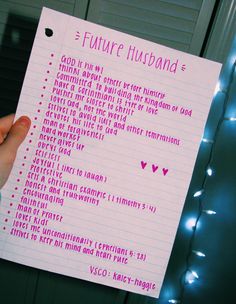 Future Husband
- GOD is his #1
- thinks about other before himself
- committed to building the kingdom of God
- have a corinthians 13 type of love
- pushes me closer to christ
- loves God, not the world
- strives to avoid lust and other temptations
- devotes his life to God
- man of forgiveness
- hard worker
- never gives up
- obeys God
- selfless
- joyful (likes to laugh)
- protective
- sets a christian example (1 timothy 3:4)
- honest and trustworthy
- understanding
- faithful
- man of prayer
- loves kids
- loves me unconditionally (ephesians 5:28)
- strives to keep his mind and heart pure
VSCO: kaley-hoggle